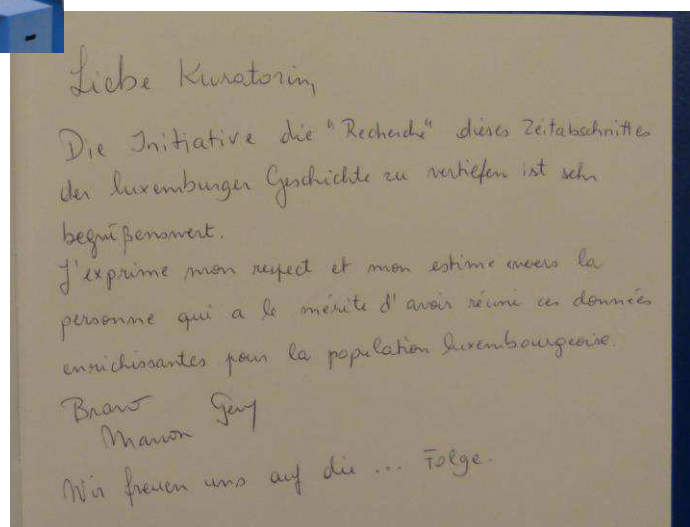 Liebe Kuratorin,
Die Initiative die "Recherche" dieses Zeitabschnittes
der luxemburger Geschichte zu vertiefen ist sehr
begrüßenswert.
J'exprime mon respect et mon estime envers la
personne qui a le mérite d'avoir réuni ces données
enrichissantes pour la population luxembourgeoise.
Bravo
Wir freuen uns auf die ... Folge.